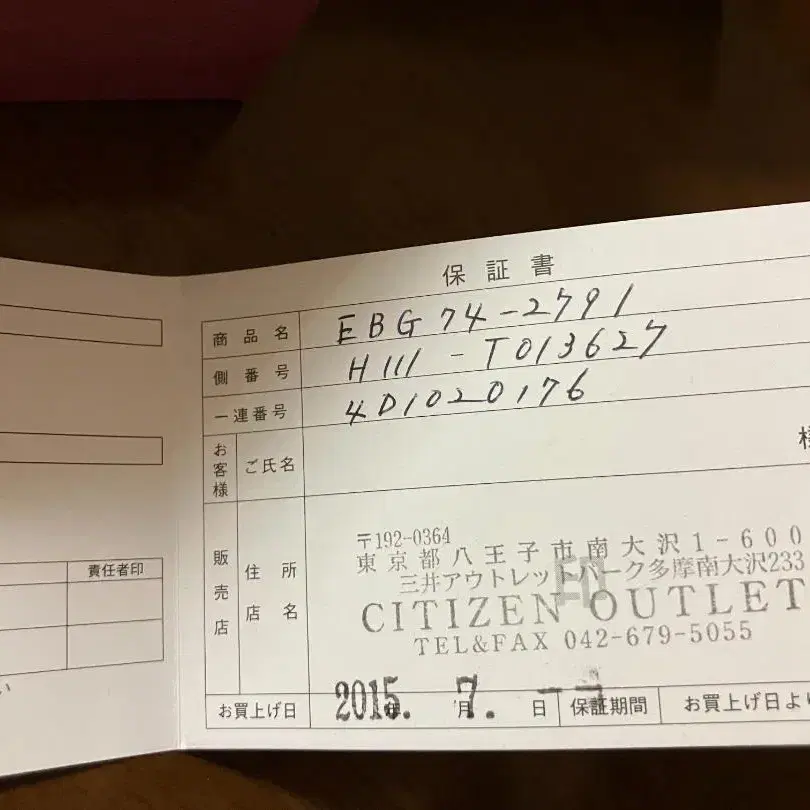 保証書
商品名 EBG74-2791
側番号 H111-T013627
一連番号 4D1020176
お客様 ご氏名 様
販売店 住所 店名
〒192-0364
東京都八王子市南大沢1-600
三井アウトレットパーク多摩南大沢233
CITIZEN OUTLET
TEL&FAX 042-679-5055
印
お買上げ日 2015.年 7.月 日 保証期間 お買上げ日より
責任者印
い